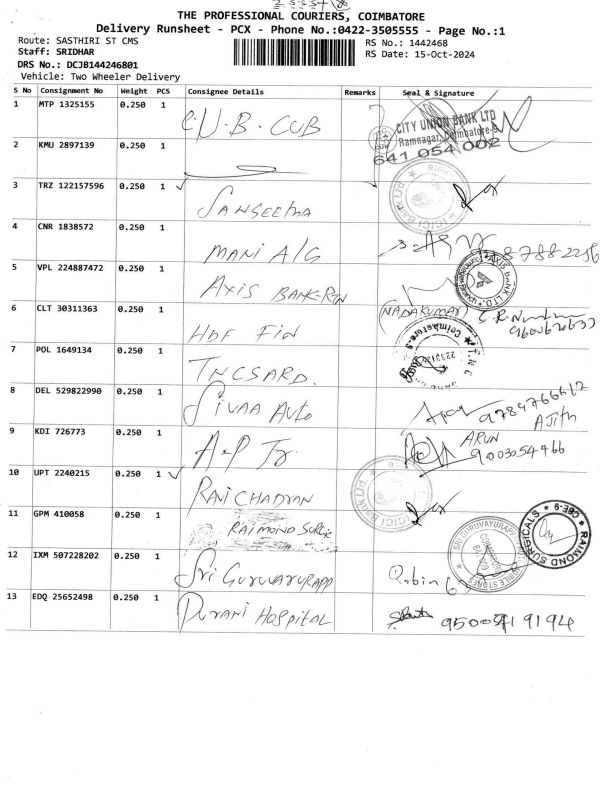 THE PROFESSIONAL COURIERS, COIMBATORE
Delivery Runsheet - PCX - Phone No.:0422-3505555 - Page No.:1
Route: SASTHIRI ST CMS
Staff: SRIDHAR
DRS No.: DCJB144246801
Vehicle: Two Wheeler Delivery
RS No.: 1442468
RS Date: 15-Oct-2024
S No Consignment No Weight PCS Consignee Details Remarks Seal & Signature
1 MTP 1325155 0.250 1 C.U.B. CUB
CITY UNION BANK LTD
Ramnagar, Coimbatore-9
641 054 002
2 KMU 2897139 0.250 1
3 TRZ 122157596 0.250 1 SANGEETHA ICICI Bank Ltd
4 CNR 1838572 0.250 1 MANI A/G 8788 2256
5 VPL 224887472 0.250 1 AXIS BANK-RN AXIS BANK LTD.
6 CLT 30311363 0.250 1 HDF FIN (NADAKUMAR) C.R.
7 POL 1649134 0.250 1 TNCSARD. Coimbatore
8 DEL 529822990 0.250 1 SIVAA AUTO 9784766612
AJith
9 KDI 726773 0.250 1 A-P Tr ARUN
9003054466
10 UPT 2240215 0.250 1 RAVICHADRAN ICICI Bank Ltd
11 GPM 410058 0.250 1 RAIMOND SURGIC RAIMOND SURGICALS CBE-9
12 IXM 507228202 0.250 1 Sri GURUVAYURAPP Robin SRI GURUVAYURAPP
13 EDQ 25652498 0.250 1 DURANI HOSPITAL 9500919194